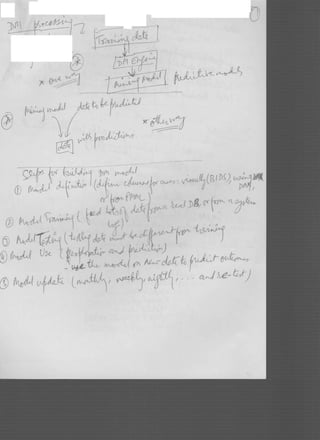 DM processing
Training data
DM Engine
* one way
Mining Model
Predictive models
Mining model data to be predicted
* other way
data with predictions
Steps for building DM model
① Model definition (define columns for cases: visually (BIDS) using DMX,
or from PMML)
② Model Training (feed lots of data from a real DB, or from a system
log)
③ Model Testing (testing data must be different from training
④ Model Use (exploration and prediction)
- use the model on new data to predict outcomes
⑤ Model update (monthly, weekly, nightly, ... and re-test)